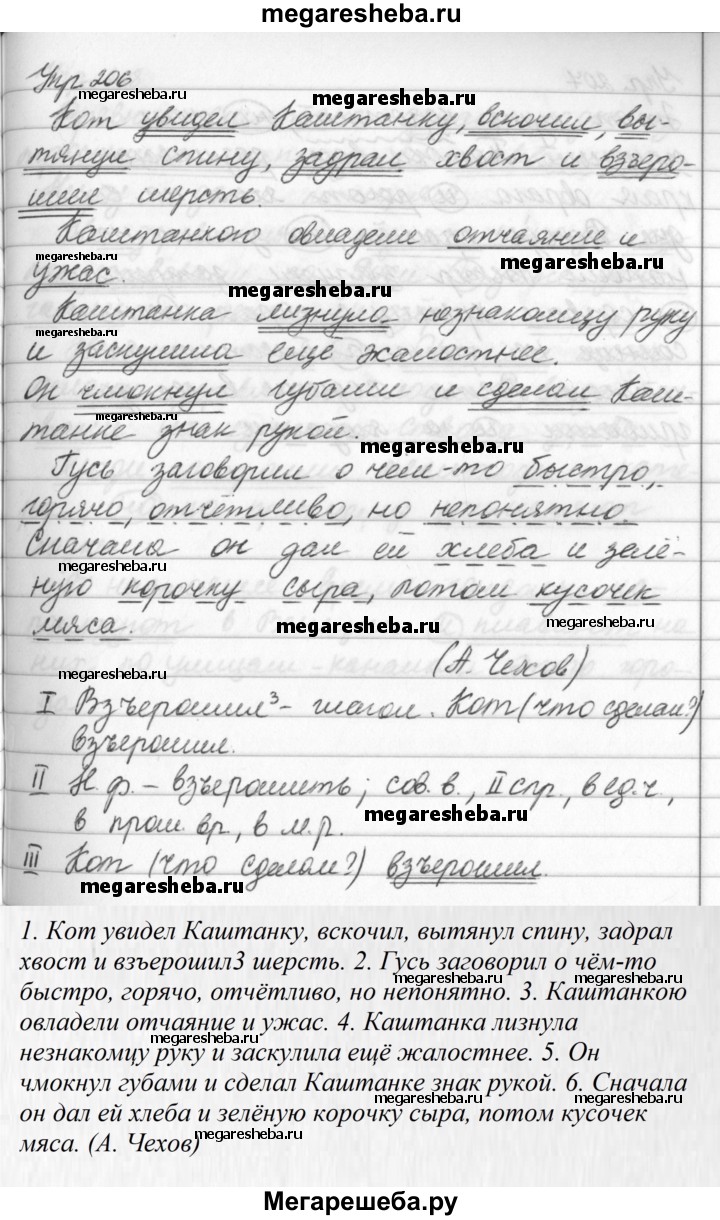 megaresheba.ru
Упр 206
megaresheba.ru
megaresheba.ru
Кот увидел Каштанку, вскочил, вы-
тянул спину, задрал хвост и взъеро-
шил шерсть.
Каштанкою овладели отчаяние и
megaresheba.ru
megaresheba.ru
ужас.
megaresheba.ru
Каштанка лизнула незнакомцу руку
megaresheba.ru
и заскулила ещё жалостнее.
Он чмокнул губами и сделал Каш-
megaresheba.ru
танке знак рукой.
megaresheba.ru
Гусь заговорил о чём-то быстро,
горячо, отчётливо, но непонятно.
Сначала он дал ей хлеба и зелё-
megaresheba.ru
ную корочку сыра, потом кусочек
мяса.
megaresheba.ru
megaresheba.ru
(А. Чехов)
I Взъерошил³ - глагол. Кот (что сделал?)
взъерошил.
II Н.ф. – взъерошить; сов. в., II спр., в ед.ч.,
в прош. вр., в м.р.
megaresheba.ru
III Кот (что сделал?) взъерошил.
megaresheba.ru
1. Кот увидел Каштанку, вскочил, вытянул спину, задрал
хвост и взъерошил3 шерсть. 2. Гусь заговорил о чём-то
быстро, горячо, отчётливо, но непонятно. 3. Каштанкою
овладели отчаяние и ужас. 4. Каштанка лизнула
megaresheba.ru
незнакомцу руку и заскулила ещё жалостнее. 5. Он
чмокнул губами и сделал Каштанке знак рукой. 6. Сначала
он дал ей хлеба и зелёную корочку сыра, потом кусочек
megaresheba.ru
мяса. (А. Чехов)
Мегарешеба.ру